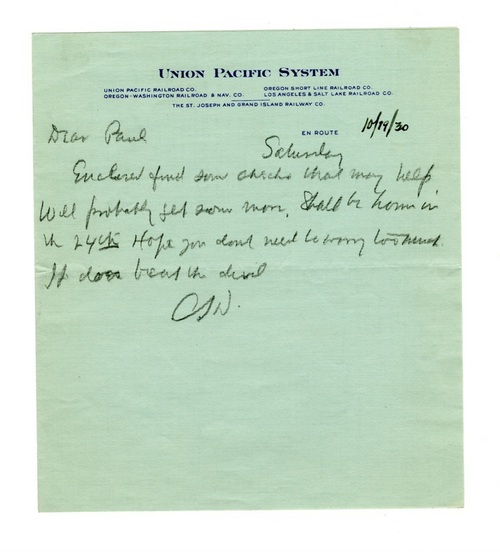 UNION PACIFIC SYSTEM
UNION PACIFIC RAILROAD CO. OREGON SHORT LINE RAILROAD CO.
OREGON-WASHINGTON RAILROAD & NAV. CO. LOS ANGELES & SALT LAKE RAILROAD CO.
THE ST. JOSEPH AND GRAND ISLAND RAILWAY CO.
EN ROUTE 10/19/30
Dear Paul
Saturday
Enclosed find some checks that may help
Will probably get some more. Shall be home on
the 24th Hope you dont need to worry too much.
It does beat the devil